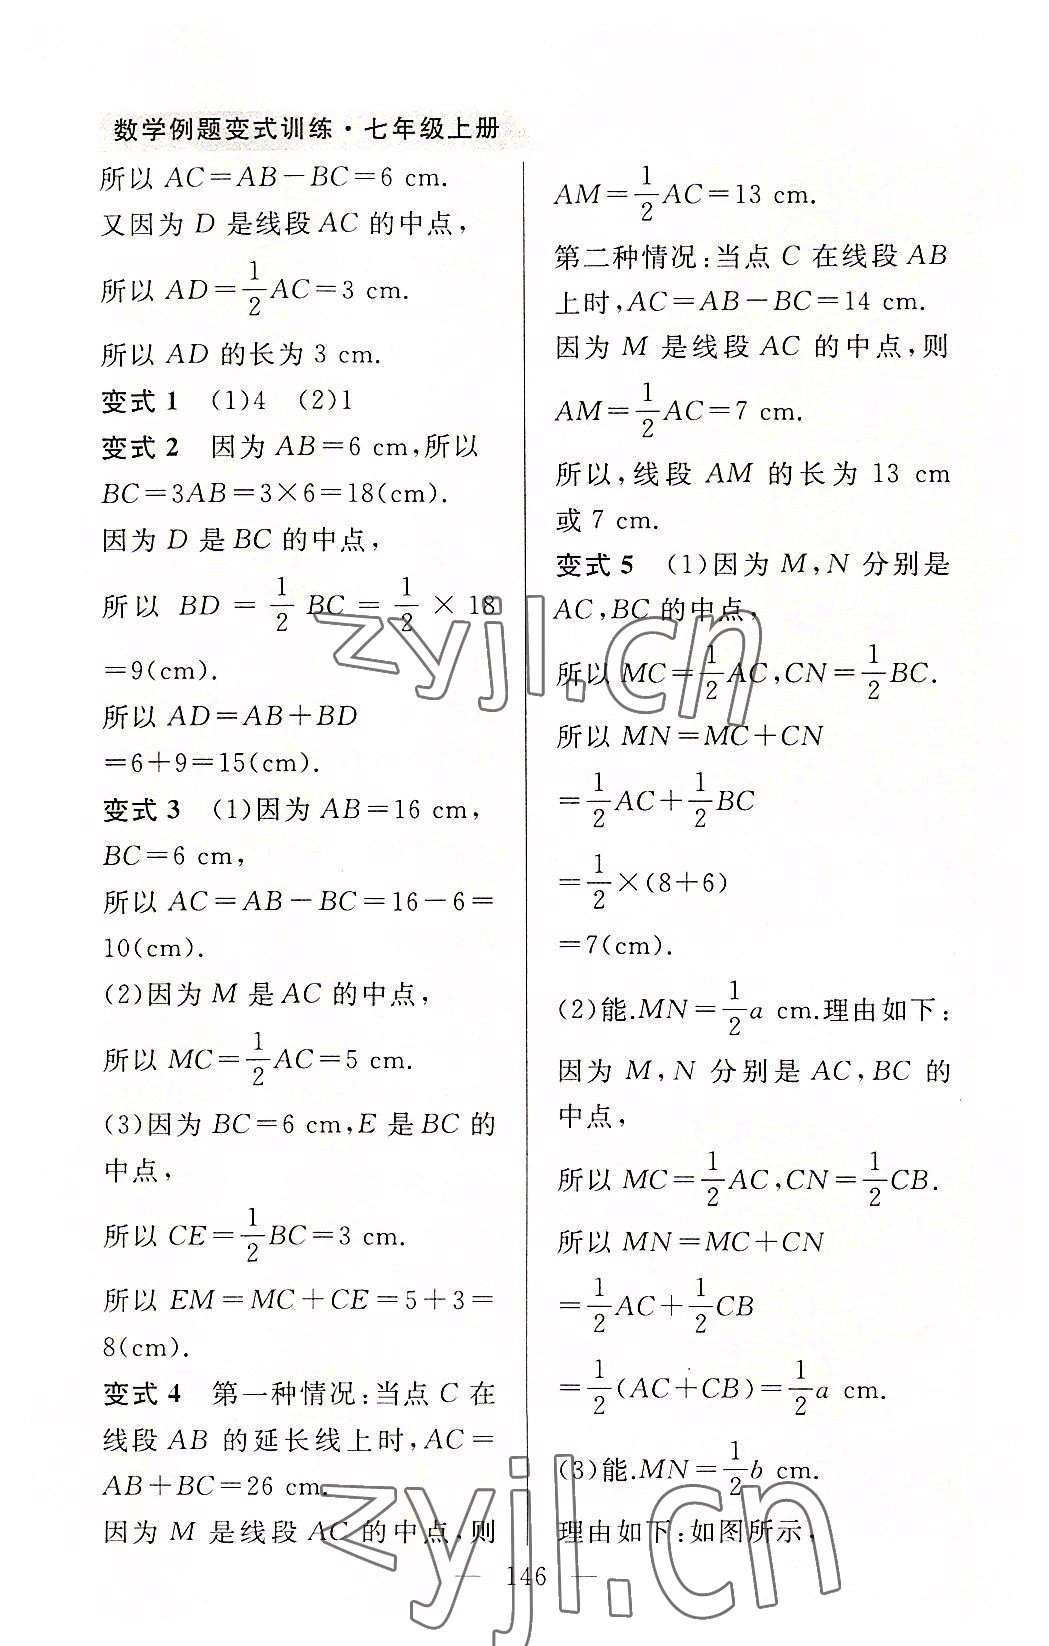 数学例题变式训练·七年级上册
所以 AC=AB-BC=6 cm.
又因为 D 是线段 AC 的中点,
所以 AD=1/2AC=3 cm.
所以 AD 的长为 3 cm.
变式 1 (1)4 (2)1
变式 2 因为 AB=6 cm,所以
BC=3AB=3×6=18(cm).
因为 D 是 BC 的中点,
所以 BD=1/2 BC=1/2×18
=9(cm).
所以 AD=AB+BD
=6+9=15(cm).
变式 3 (1)因为 AB=16 cm,
BC=6 cm,
所以 AC=AB-BC=16-6=
10(cm).
(2)因为 M 是 AC 的中点,
所以 MC=1/2AC=5 cm.
(3)因为 BC=6 cm,E 是 BC 的
中点,
所以 CE=1/2BC=3 cm.
所以 EM=MC+CE=5+3=
8(cm).
变式 4 第一种情况:当点 C 在
线段 AB 的延长线上时,AC=
AB+BC=26 cm.
因为 M 是线段 AC 的中点,则
AM=1/2AC=13 cm.
第二种情况:当点 C 在线段 AB
上时,AC=AB-BC=14 cm.
因为 M 是线段 AC 的中点,则
AM=1/2AC=7 cm.
所以,线段 AM 的长为 13 cm
或 7 cm.
变式 5 (1)因为 M,N 分别是
AC,BC 的中点,
所以 MC=1/2AC,CN=1/2BC.
所以 MN=MC+CN
=1/2AC+1/2BC
=1/2×(8+6)
=7(cm).
(2)能.MN=1/2a cm.理由如下:
因为 M,N 分别是 AC,BC 的
中点,
所以 MC=1/2AC,CN=1/2CB.
所以 MN=MC+CN
=1/2AC+1/2CB
=1/2(AC+CB)=1/2a cm.
(3)能.MN=1/2b cm.
理由如下:如图所示,
— 146 —
zyjl.cn
zyjl.cn